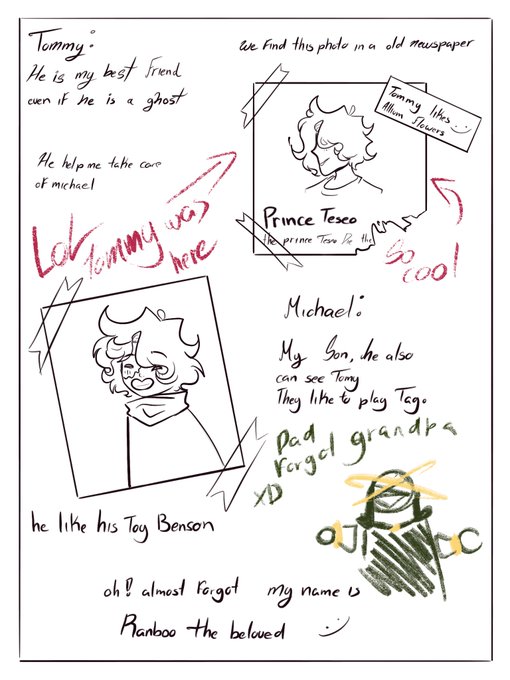 Tommy:
He is my best Friend
even if he is a ghost
He help me take care
of michael
we find this photo in a old newspaper
Tommy likes
Allium flowers :)
Prince Teseo
the prince Teseo Die the
Lol Tommy was
here
So
cool
Michael:
My Son, he also
can see Tomy
They like to play Tag.
Dad
Forgot grandpa
XD
he like his Toy Benson
oh! almost forgot my name is
Ranboo the beloved :)